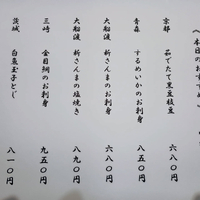 本日のおすすめ
京都 茹でたて黒豆枝豆 六八〇円
青森 するめいかのお刺身 八五〇円
大船渡 新さんまのお刺身 六八〇円
大船渡 新さんまの塩焼き 八九〇円
三崎 金目鯛のお刺身 九五〇円
茨城 白魚玉子とじ 八一〇円